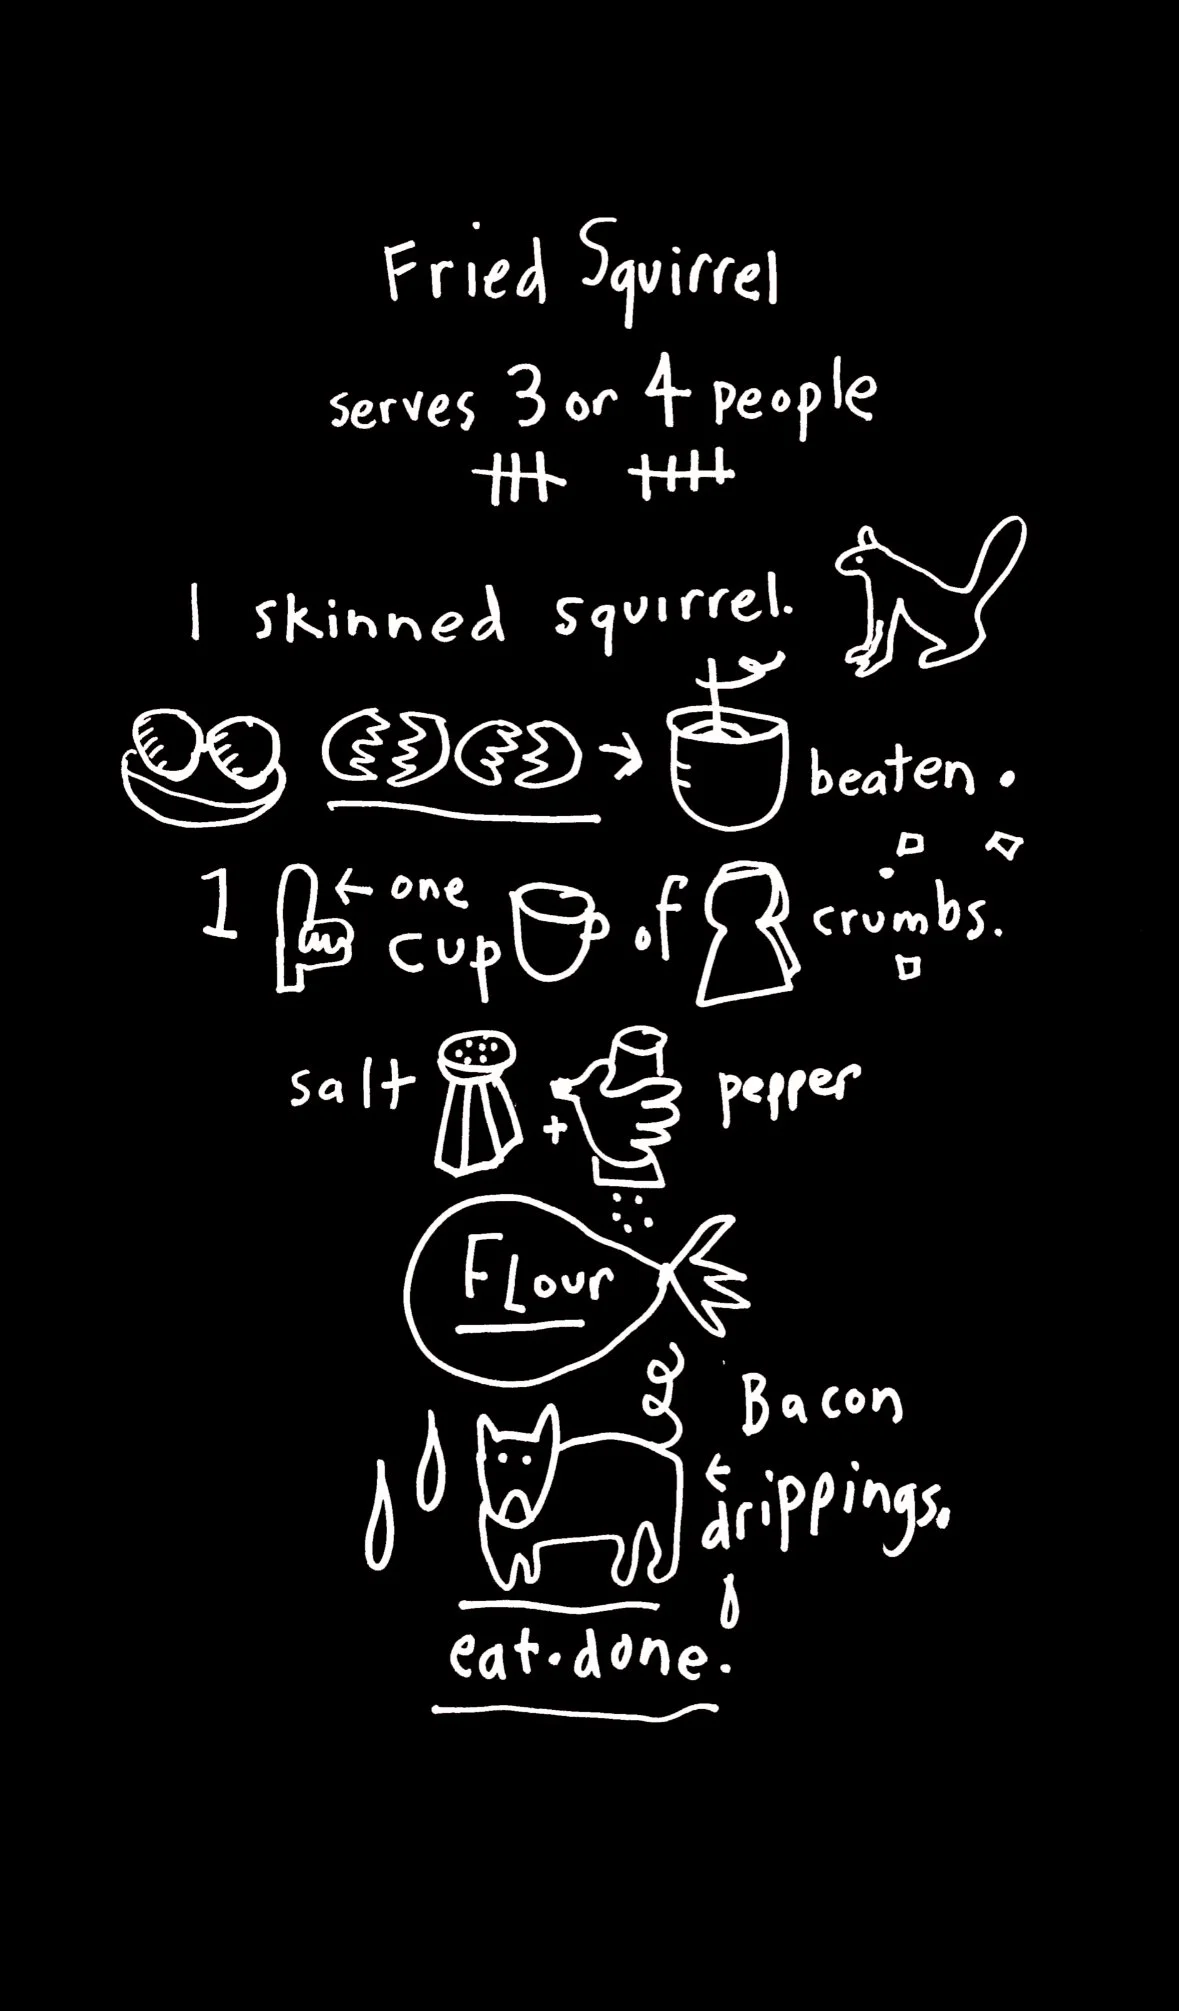 Fried Squirrel
serves 3 or 4 people
1 skinned squirrel.
beaten.
1 ← one cup of crumbs.
salt + pepper
FLour
Bacon
← drippings.
eat. done.